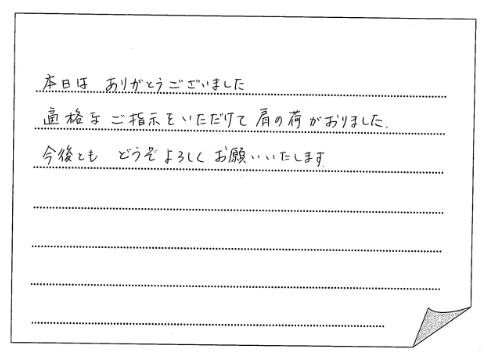 本日は ありがとうございました
適格な ご指示をいただけて 肩の荷がおりました.
今後とも どうぞ よろしく お願いいたします.